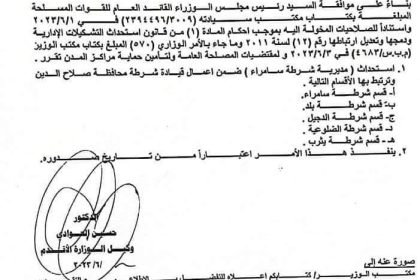 بناءً على موافقة السيد رئيس مجلس الوزراء القائد العام للقوات المسلحة
المبلغة بكتاب مكتب سيادته (٢٣٩٤٤٩٦/٣٠٠٩) في ٢٠٢٣/٦/١
واستناداً للصلاحيات المخولة اليه بموجب احكام المادة (١) من قانون استحداث التشكيلات الإدارية
ودمجها وتعديل ارتباطها رقم (١٢) لسنة ٢٠١١ وما جاء بالأمر الوزاري (٥٧٠) المبلغ بكتاب مكتب الوزير
(م.ب.س/٤٦٨٣) في ٢٠٢٣/٦/٣ و لمقتضيات المصلحة العامة ولتأمين حماية مراكز المدن تقرر .
١. استحداث ( مديرية شرطة سامراء ) ضمن اعمال قيادة شرطة محافظة صلاح الدين
وترتبط بها الأقسام التالية .
أ- قسم شرطة سامراء.
ب- قسم شرطة بلد.
ج- قسم شرطة الدجيل
د- قسم شرطة الضلوعية
هـ - قسم شرطة يثرب
٢. ينفذ هذا الأمر اعتباراً من تاريخ صدوره.
الدكتور
حسين العوادي
وكيل الوزارة الأقدم
٢٠٢٣/٦/
صورة عنه إلى
مكتب الوزير/ كتابكم اعلاه